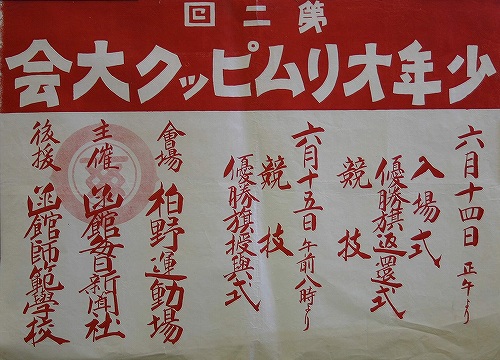 第二回
少年オリムピック大会
六月十四日 正午より
入場式
優勝旗返還式
競技
六月十五日 午前八時より
競技
優勝旗授與式
會場 柏野運動場
主催 函館毎日新聞社
後援 函館師範學校